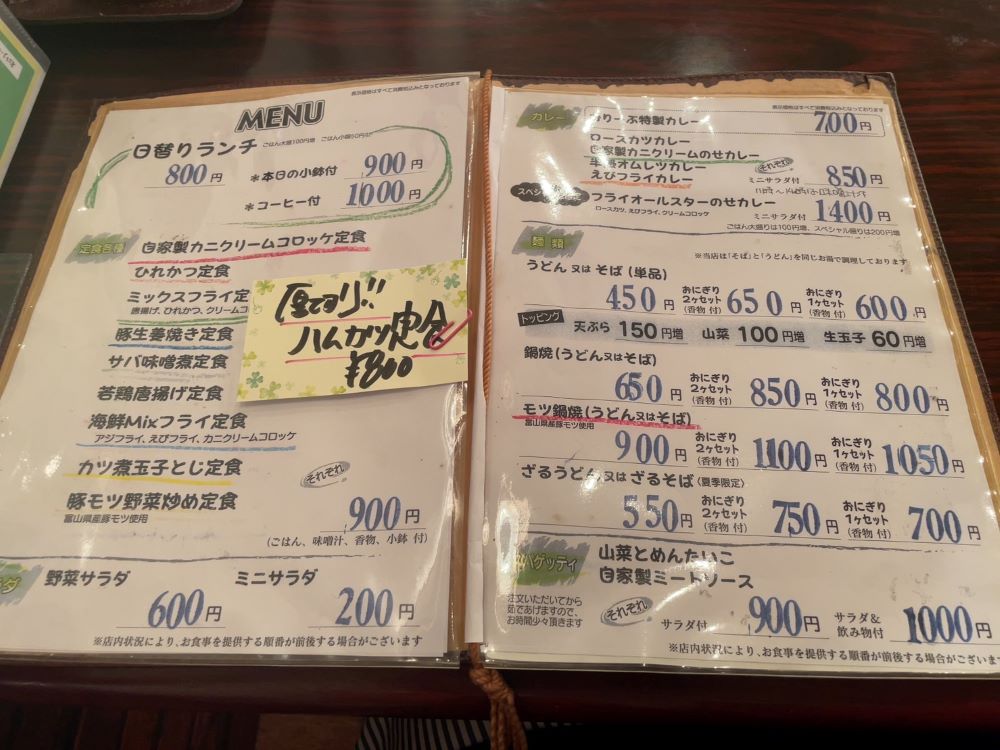 表示価格はすべて消費税込みとなっております
MENU
日替りランチ ごはん大盛100円増 ごはん小盛50円
800円 *本日の小鉢付 900円
*コーヒー付 1000円
定食各種
自家製カニクリームコロッケ定食
ひれかつ定食
ミックスフライ定
唐揚げ、ひれかつ、クリームコ
豚生姜焼き定食
サバ味噌煮定食
若鶏唐揚げ定食
海鮮Mixフライ定食
アジフライ、えびフライ、カニクリームコロッケ
カツ煮玉子とじ定食
豚モツ野菜炒め定食
富山県産豚モツ使用
それぞれ
900円
(ごはん、味噌汁、香物、小鉢 付)
厚切り!!
ハムカツ定食
¥800
ダ
野菜サラダ ミニサラダ
600円 200円
※店内状況により、お食事を提供する順番が前後する場合がございます
表示価格はすべて消費税込みとなっております
カレー
りーぶ特製カレー 700円
ロースカツカレー
自家製カニクリームのせカレー
半熟オムレツカレー
えびフライカレー
それぞれ
ミニサラダ付 850円
スペシャル
フライオールスターのせカレー
ロースカツ、えびフライ、クリームコロッケ
ミニサラダ付 1400円
ごはん大盛りは100円増、スペシャル盛りは200円増
麺類
※当店は「そば」と「うどん」を同じお釜で調理しております
うどん 又は そば (単品)
450円 おにぎり2ケセット(香物 付) 650円 おにぎり1ケセット(香物 付) 600円
トッピング 天ぷら 150円増 山菜 100円増 生玉子 60円増
鍋焼 (うどん 又は そば)
650円 おにぎり2ケセット(香物 付) 850円 おにぎり1ケセット(香物 付) 800円
モツ鍋焼 (うどん 又は そば)
富山県産豚モツ使用
900円 おにぎり2ケセット(香物 付) 1100円 おにぎり1ケセット(香物 付) 1050円
ざるうどん 又は ざるそば (夏季限定)
550円 おにぎり2ケセット(香物 付) 750円 おにぎり1ケセット(香物 付) 700円
パゲッティ
山菜とめんたいこ
自家製ミートソース
注文いただいてから
茹であげますので、
お時間少々頂きます
それぞれ
サラダ付 900円 サラダ&飲み物付 1000円
※店内状況により、お食事を提供する順番が前後する場合がございます